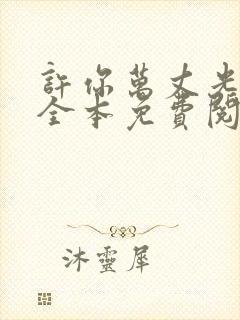 許你萬丈光
全本免費閱
沐靈犀